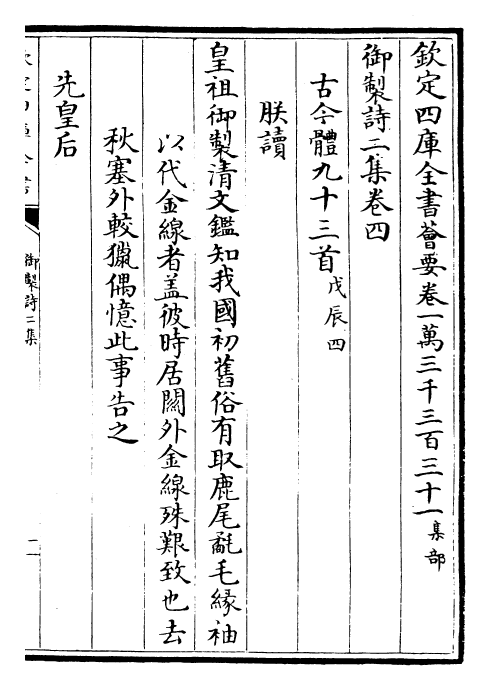 欽定四庫全書薈要卷一萬三千三百三十一集部
御製詩二集卷四
古今體九十三首戊辰四
朕讀
皇祖御製清文鑑知我國初舊俗有取鹿尾氄毛緣袖
以代金線者盖彼時居關外金線殊艱致也去
秋塞外較獵偶憶此事告之
先皇后
御製詩二集